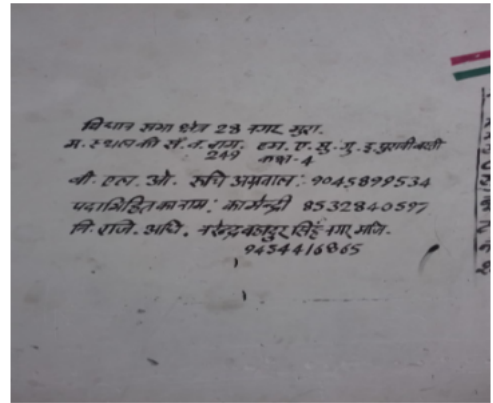 विधान सभा क्षेत्र 28 नगर मुरा.
म. स्थल की सं. व. भाग. एम. ए. सु. गु. इ. पुरानी बस्ती
249 कक्ष-4
बी. एल. ओ. रूचि अग्रवाल: 9045899534
पदाभिहित का नाम: कामेन्द्री 8532840597
नि. राजि. अधि. नरेन्द्र बहादुर सिंह नगर मजि.
9454416865